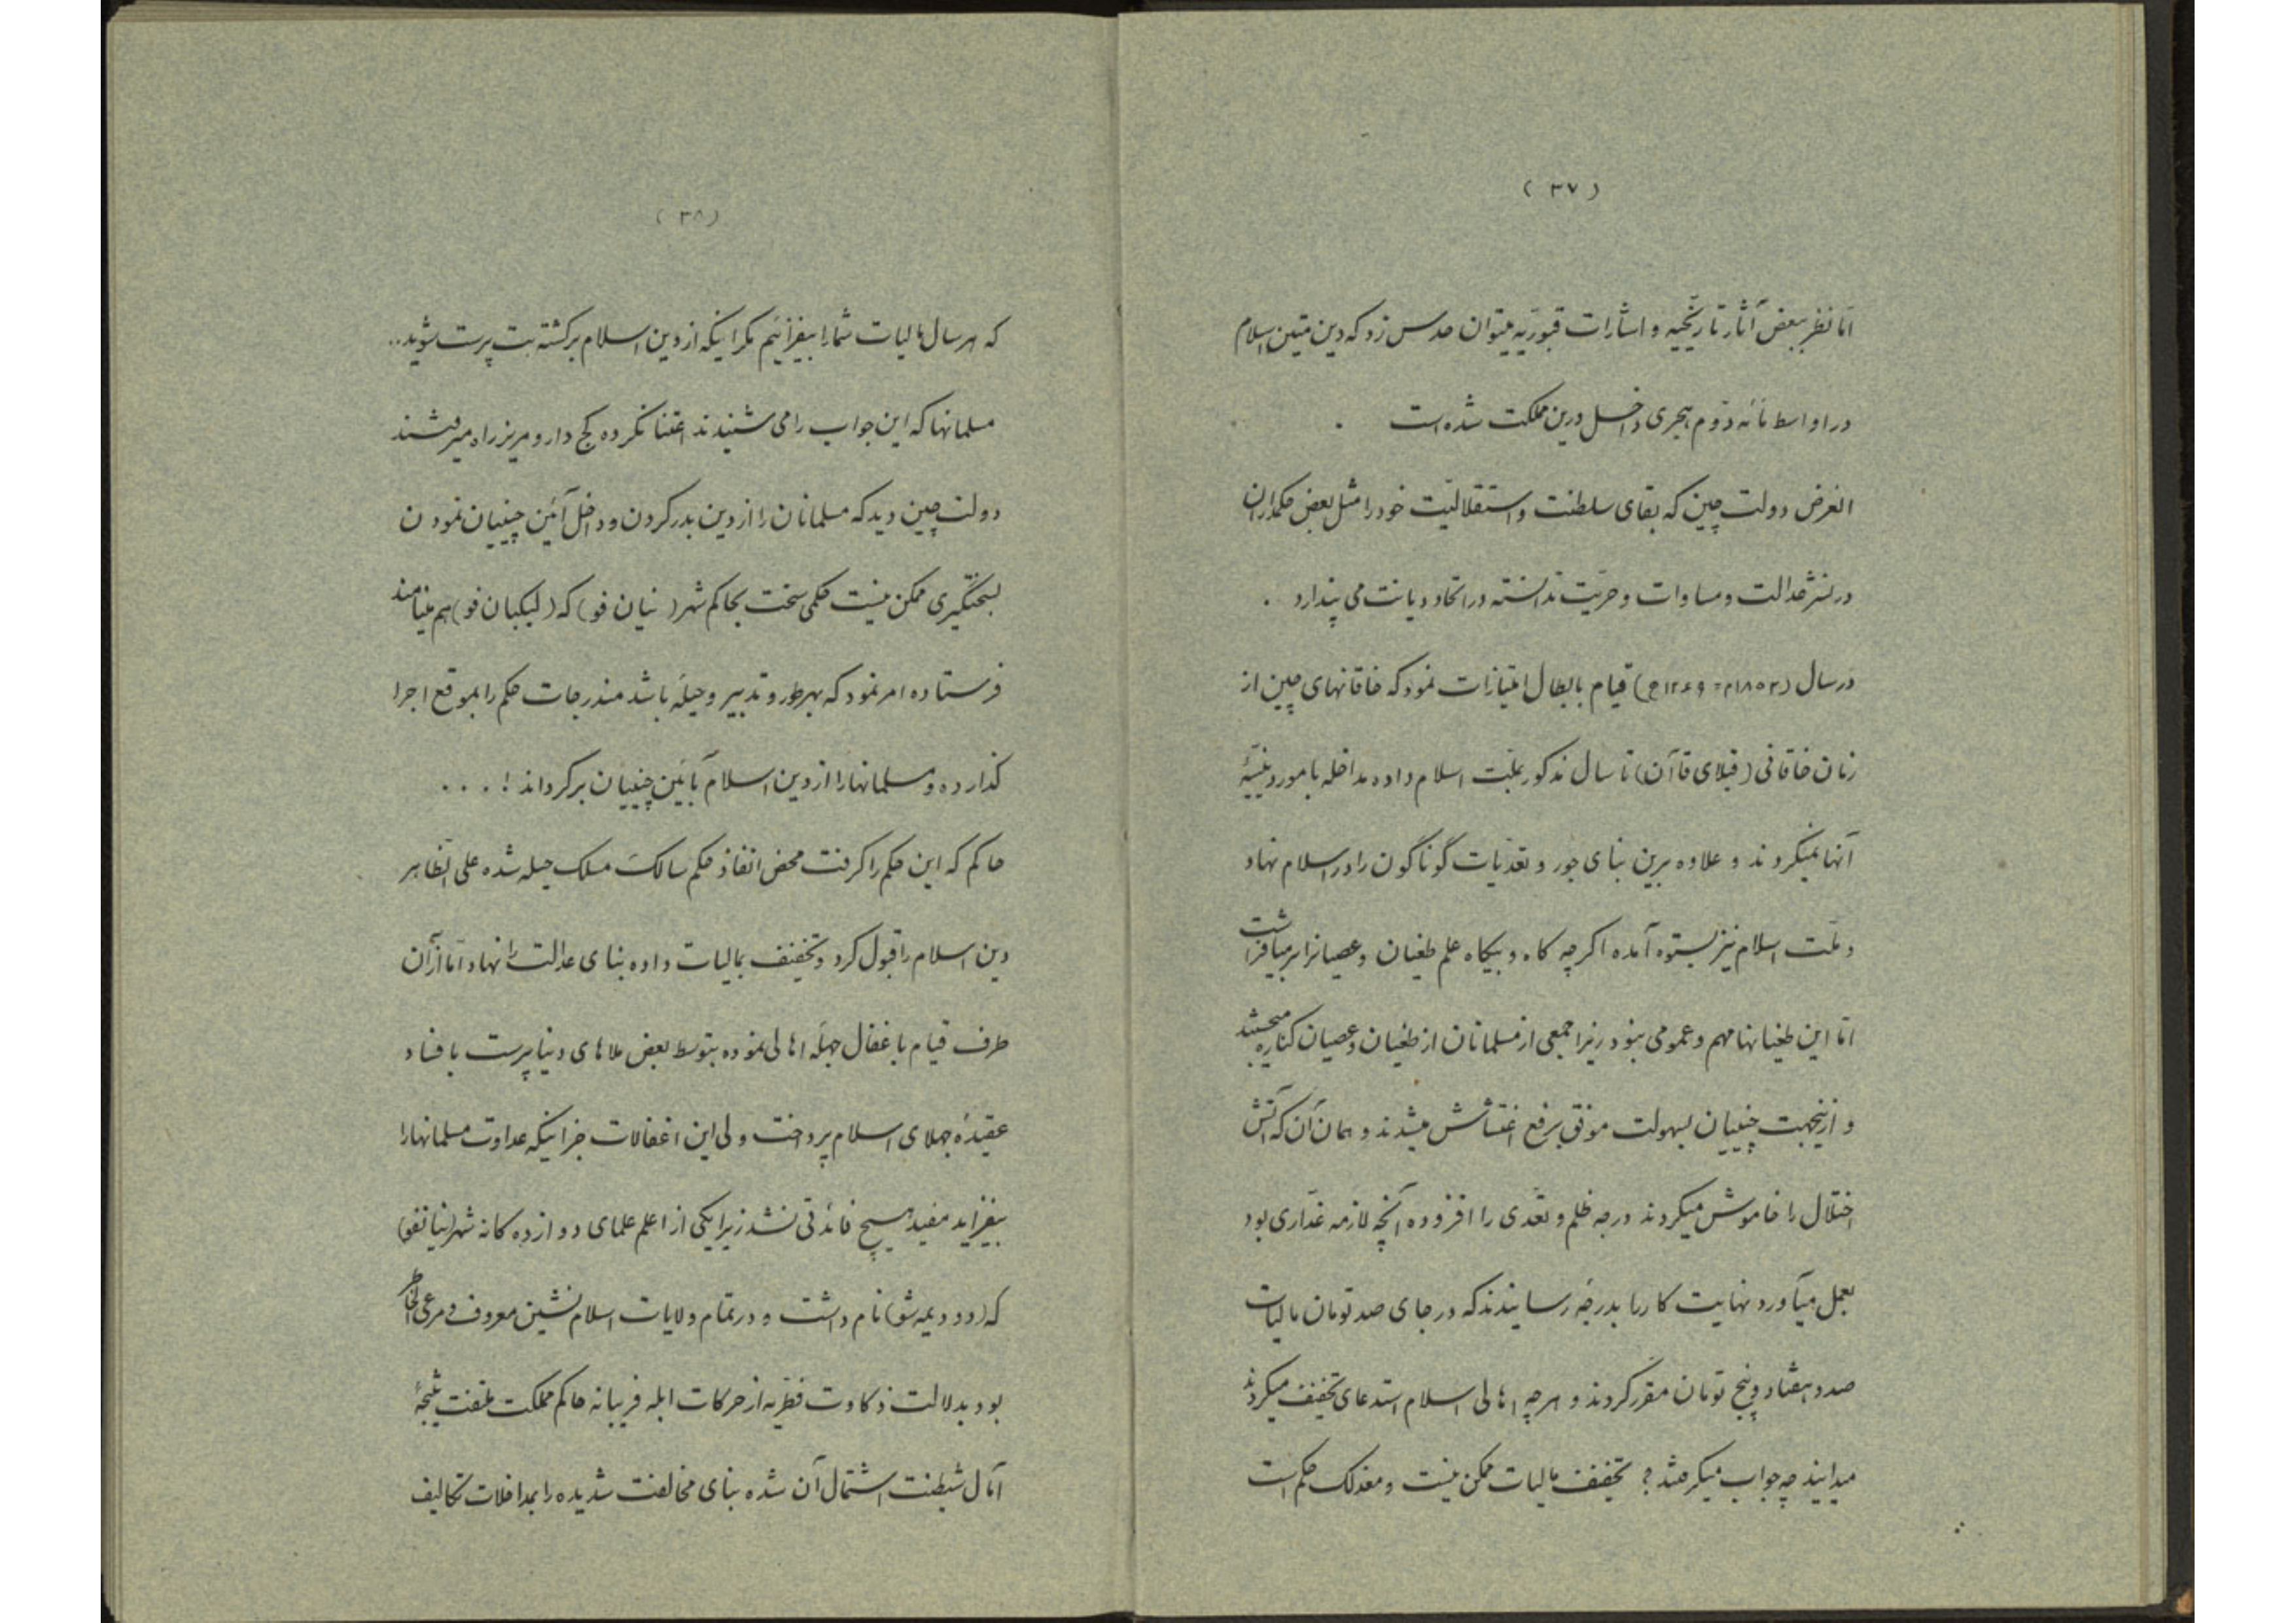 ( ۳۷ )
امّا نظر ببعض آثار تاریخیه و اشارات قبوریّه میتوان حدس زد که دین متین اسلام
در اواسط مائه دوّم هجری داخل درین مملکت شده است .
الغرض دولت چین که بقای سلطنت و استقلالیّت خود را مثل بعض حکمداران
در نشر عدالت و مساوات و حریّت ندانسته در اتحاد دیانت می پندارد .
در سال (۱۸۵۳م = ۱۲۶۹ه) قیام بابطال امتیازات نمود که خاقانهای چین از
زمان خاقانی (قبلای قاآن) تا سال مذکور بملّت اسلام داده مداخله بامور دینیّهٔ
آنها نمیکردند و علاوه برین بنای جور و تعدّیات گوناگون را در اسلام نهاد
و ملّت اسلام نیز بستوه آمده اگرچه گاه و بیگاه علم طغیان و عصیانرا برمیافراشت
امّا این طغیانها مهم و عمومی نبود زیرا جمعی از مسلمانان از طغیان و عصیان کناره میجستند
و ازینجهت چینیان بسهولت موفق برفع اغتشاش میشدند و همان آن که آتش
اختلال را خاموش میکردند درجه ظلم و تعدّی را افزوده آنچه لازمه غدّاری بود
بعمل میآورد نهایت کار را بدرجهٔ رسانیدند که در جای صد تومان مالیات
صد و هفتاد و پنج تومان مقرر کردند و هرچه اهالی اسلام استدعای تخفیف میکردند
میدانید چه جواب میگرفتند ؟ تخفیف مالیات ممکن نیست و معذلک حکم است
( ۳۸ )
که هر سال مالیات شما را بیفزائیم مگر اینکه از دین اسلام برگشته بت پرست شوید..
مسلمانها که این جواب را می شنیدند اعتنا نکرده کج دار و مریز راه میرفتند
دولت چین دید که مسلمانان را از دین بدر کردن و داخل آئین چینیان نمودن
بسختگیری ممکن نیست حکمی سخت بحاکم شهر ( نیان فو ) که ( لیکیان فو ) هم مینامند
فرستاده امر نمود که بهر طور و تدبیر و حیله باشد مندرجات حکم را بموقع اجرا
گذارده و مسلمانها را از دین اسلام بآئین چینیان برگرداند ! . . .
حاکم که این حکم را گرفت محض انفاذ حکم سالک مسلک حیله شده علی الظاهر
دین اسلام را قبول کرد و تخفیف بمالیات داده بنای عدالت را نهاد امّا از آن
طرف قیام باغفال جهله اهالی نموده بتوسط بعض ملاهای دنیا پرست بافساد
عقیدهٔ جهلای اسلام پرداخت ولی این اغفالات جز اینکه عداوت مسلمانها را
بیفزاید مفید هیچ فائدتی نشد زیرا یکی از اعلم علمای دوازده گانه شهر (نیانفو)
که (دودیمه شو) نام داشت و در تمام ولایات اسلام نشین معروف و مرعی الخاطر
بود بدلالت ذکاوت فطریّه از حرکات ابله فریبانه حاکم مملکت ملتفت نتیجهٔ
آمال شیطنت اشتمال آن شده بنای مخالفت شدیده را بمداخلات تکالیف